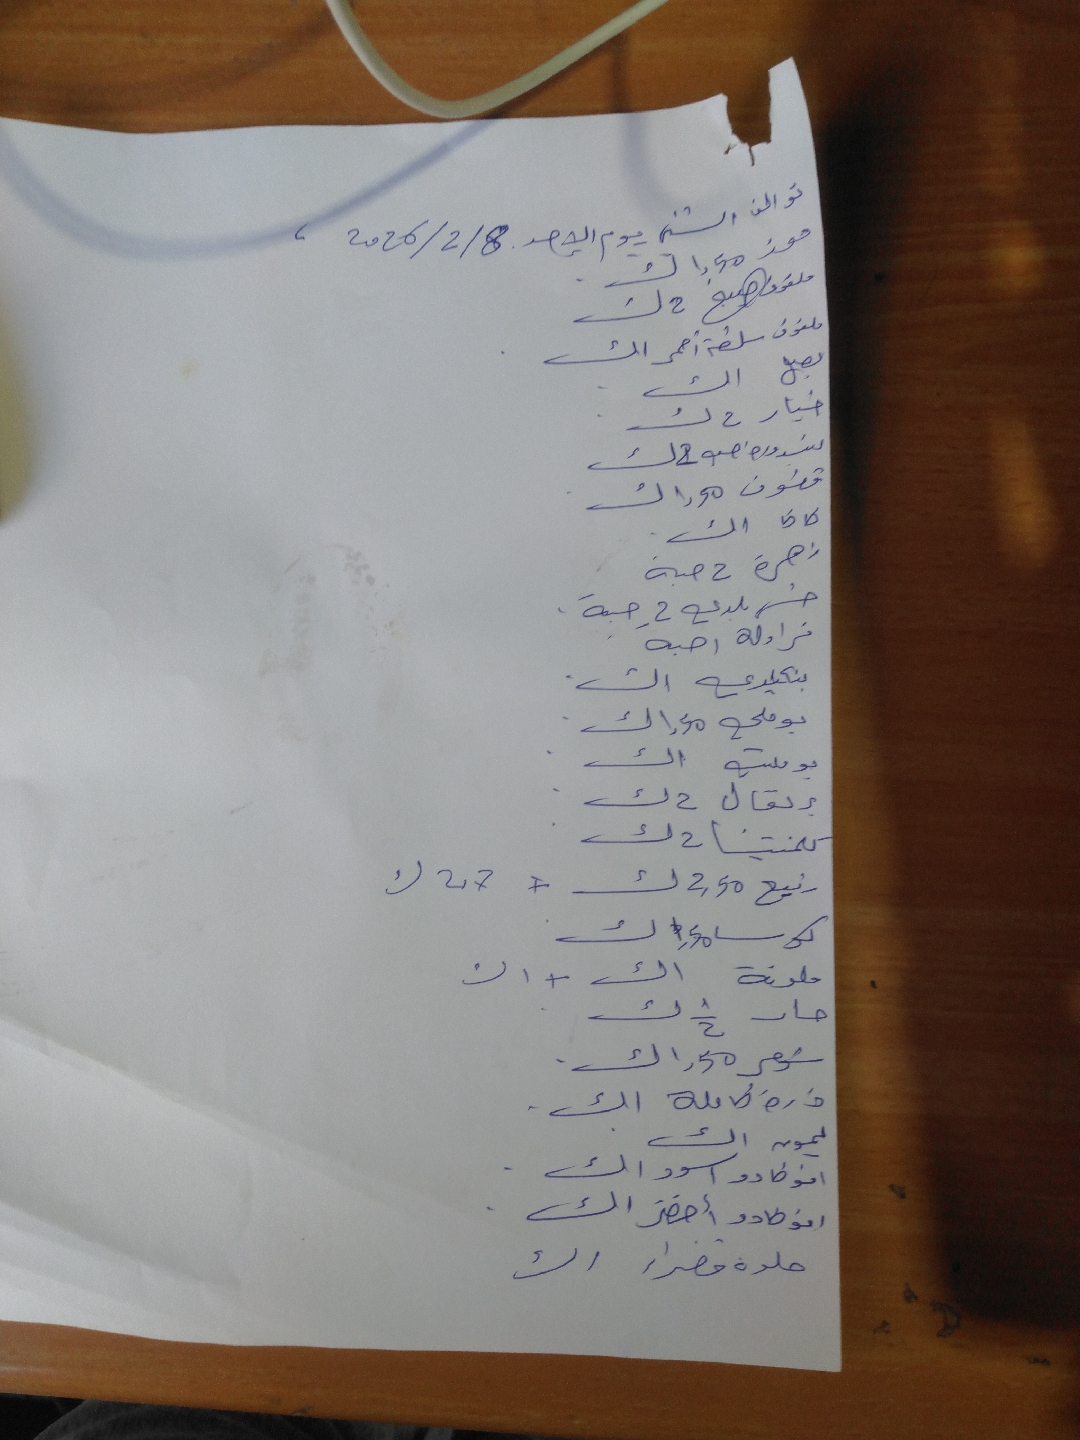 توالف الشتم يوم الاحد 2026/2/8
موز 1,50 ك
ملفوف 2 ك
ملفوف سلطة أحمر 1 ك
بصل 1 ك
خيار 2 ك
بندورة حبه 2 ك
1,50 ك
كاكا 1 ك
زهرة 2 حبة
خس بلدي 2 حبة
فراولة 1 حبه
1 ك
بوملي 1,50 ك
بوملته 1 ك
برتقال 2 ك
كلمنتينا 2 ك
رفيع 2,50 ك + ك
كوسا 1,50 ك
ملونة 1 ك + 1 ك
حار 1/2 ك
شومر 1,50 ك
ذره كاملة 1 ك
ليمون 1 ك
افوكادو اسود 1 ك
افوكادو أخضر 1 ك
حلوه خضراء 1 ك